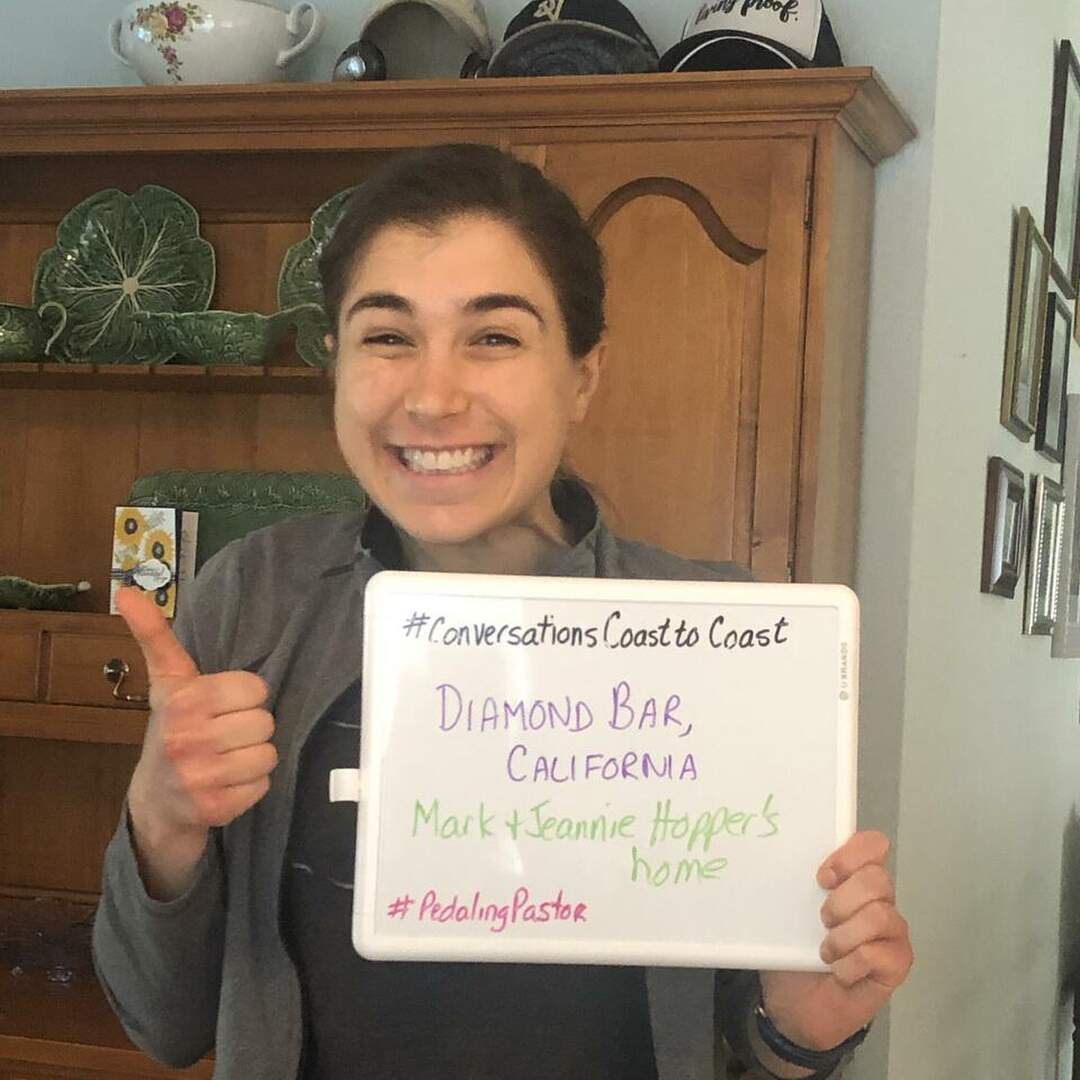 living proof.
#Conversations Coast to Coast
DIAMOND BAR,
CALIFORNIA
Mark + Jeannie Hopper's
home
#PedalingPastor
U BRANDS